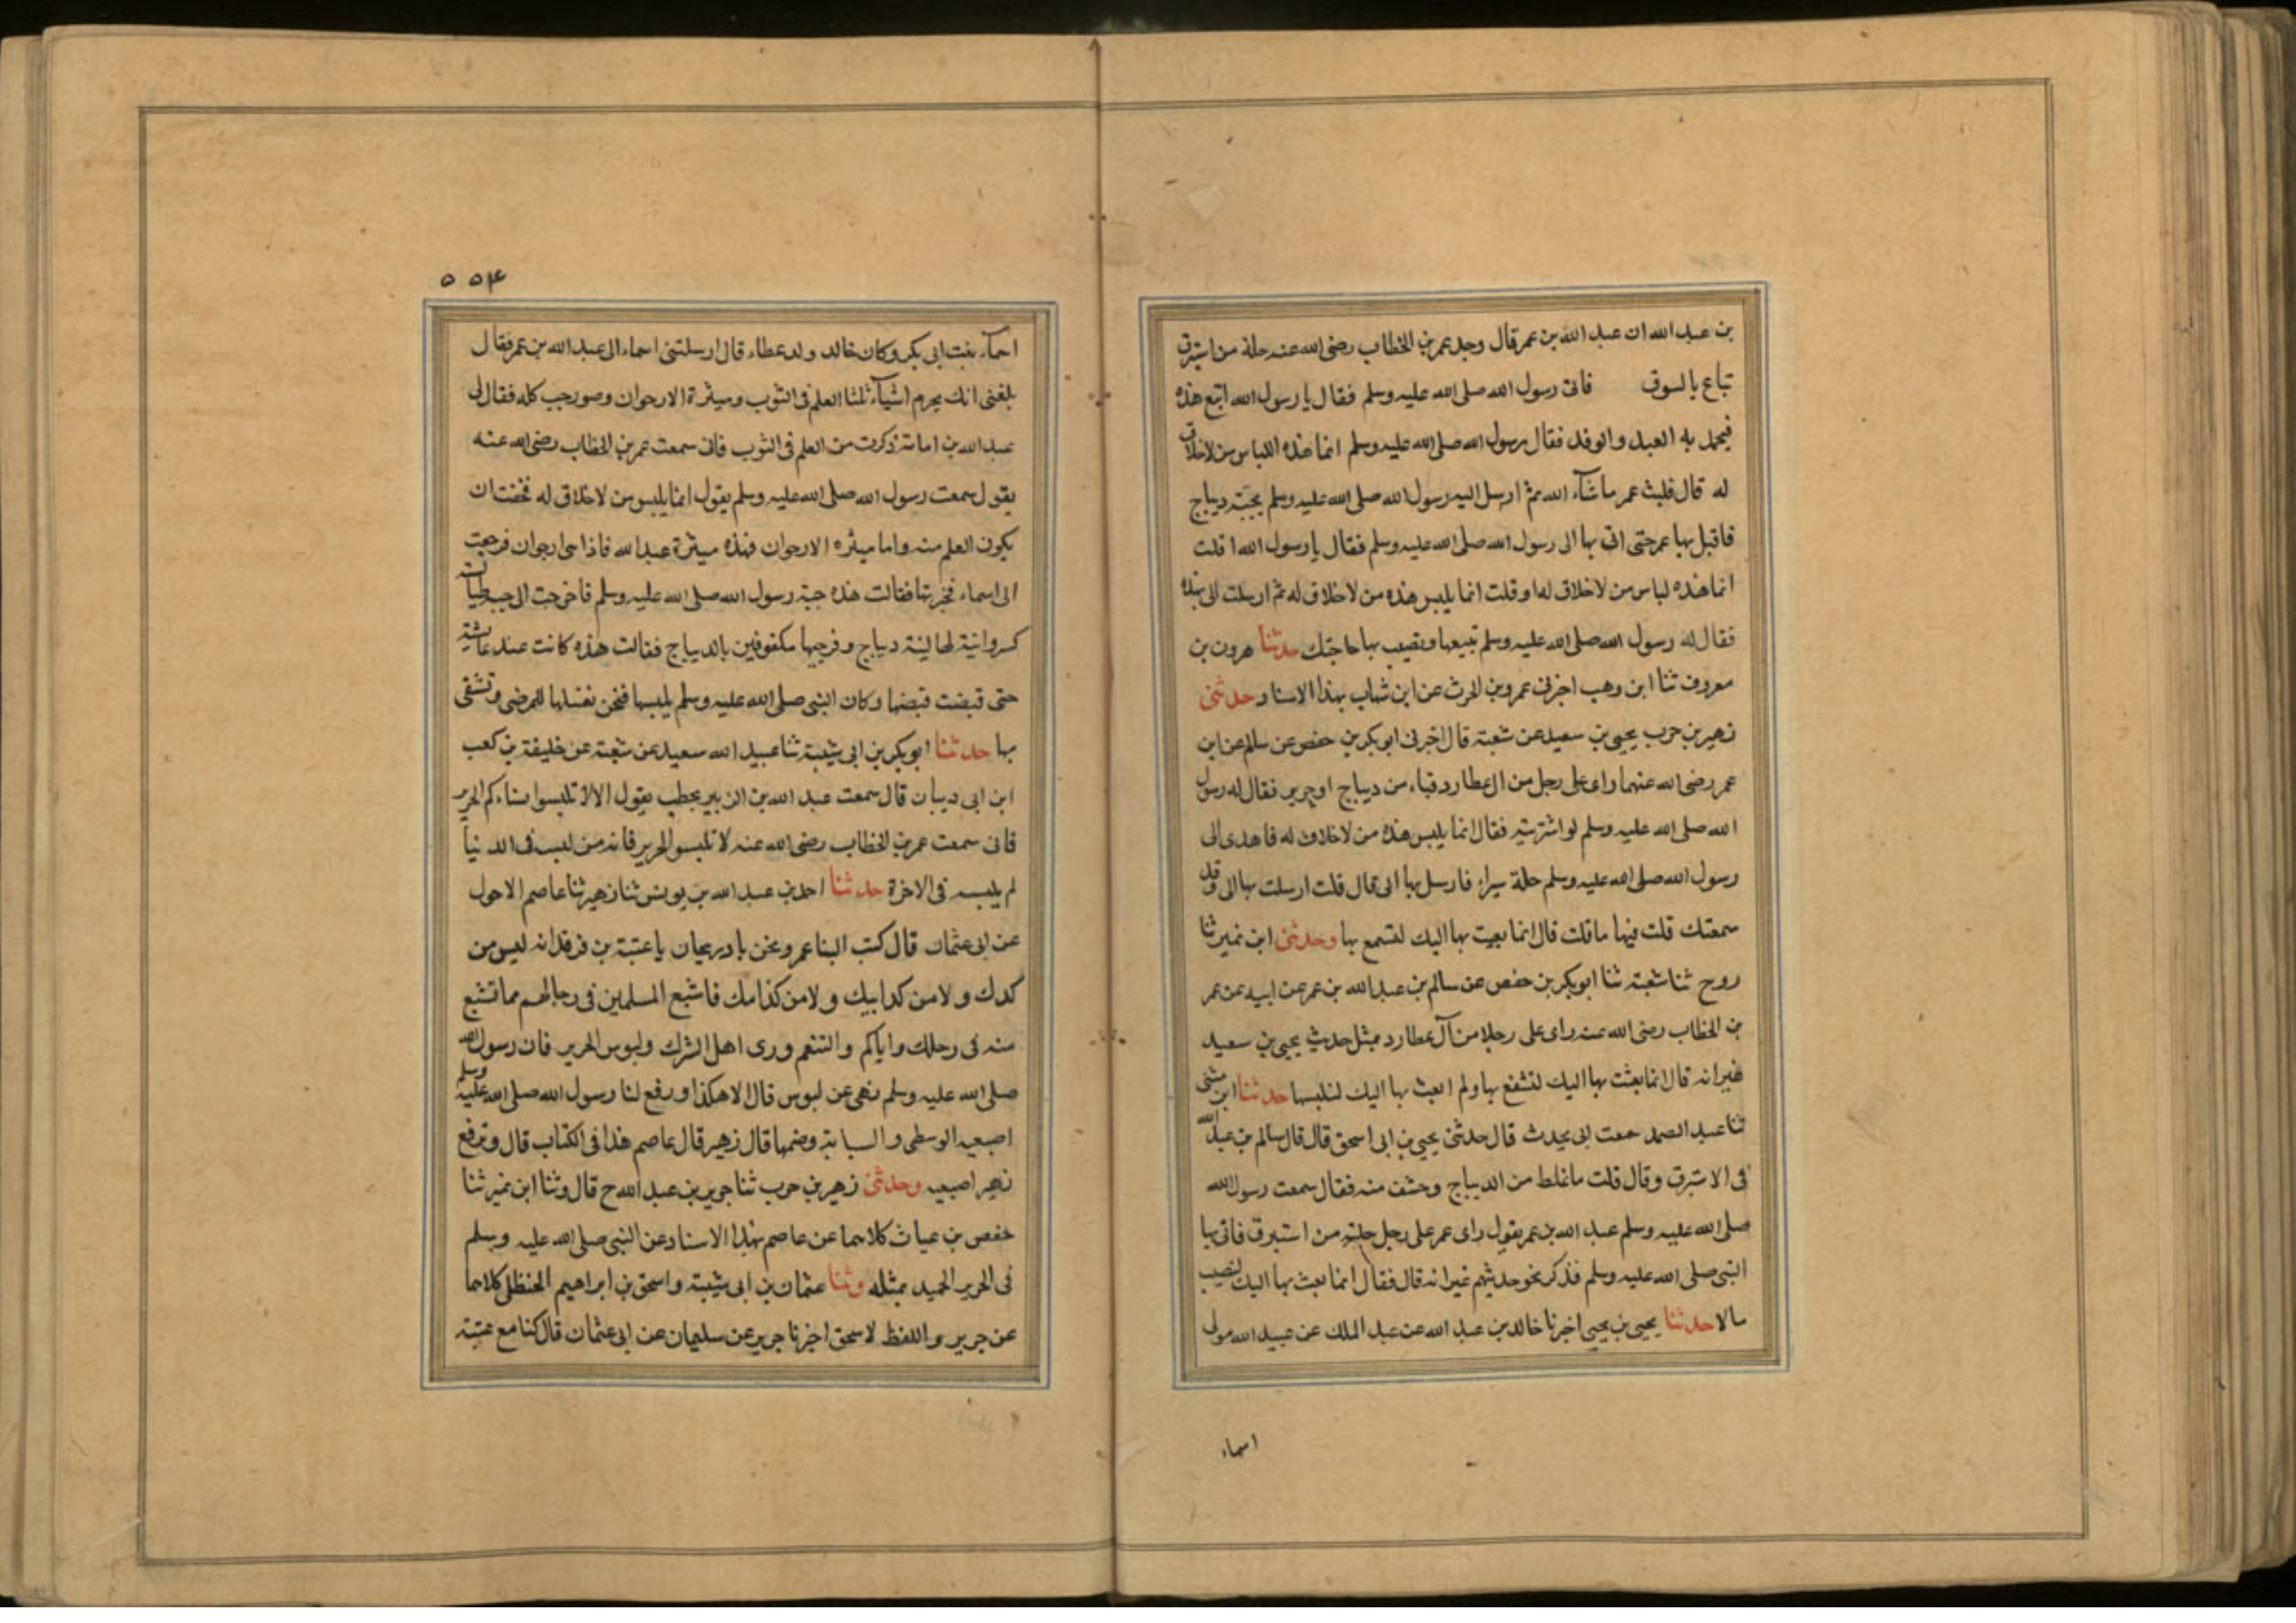 بن عبد الله ان عبد الله بن عمر قال وجد عمر بن الخطاب رضى الله عنه حلة من استبرق
تباع بالسوق فاتى رسول الله صلى الله عليه وسلم فقال يا رسول الله ابتع هذه
فيجمل به العيد والوفد فقال رسول الله صلى الله عليه وسلم انما هذه اللباس من لا خلاق
له قال فلبث عمر ما شآء الله ثم ارسل اليه رسول الله صلى الله عليه وسلم بجبة ديباج
فاقبل بها عمر حتى اتى بها الى رسول الله صلى الله عليه وسلم فقال يا رسول الله اقلت
انما هذه لباس من لا خلاق له او قلت انما يلبس هذه من لا خلاق له ثم ارسلت الى بهذه
فقال له رسول الله صلى الله عليه وسلم تبيعها وتصيب بها حاجتك حدثنا هرون بن
معروف ثنا ابن وهب اخبرنى عمرو بن الحرث عن ابن شهاب بهذا الاسناد وحدثنى
زهير بن حرب يحيى بن سعيد عن شعبة قال اخبرنى ابو بكر بن حفص عن سالم عن ابن
عمر رضى الله عنهما راى على رجل من ال عطارد قباء من ديباج او حرير فقال له رسول
الله صلى الله عليه وسلم لو اشتريته فقال انما يلبس هذه من لا خلاق له فاهدى الى
رسول الله صلى الله عليه وسلم حلة سيراء فارسل بها الى قال قلت ارسلت بها الى وقد
سمعتك قلت فيها ما قلت قال انما بعيت بها اليك لتستمع بها وحدثنى ابن نمير ثنا
روح ثنا شعبة ثنا ابو بكر بن حفص عن سالم بن عبد الله بن عمر عن ابيه عن عمر
بن الخطاب رضى الله عنه راى على رجلا من آل عطارد بمثل حديث يحيى بن سعيد
غير انه قال انما بعثت بها اليك لتنتفع بها ولم ابعث بها اليك لتلبسها حدثنا ابن مثنى
ثنا عبد الصمد سمعت ابى يحدث قال حدثنى يحيى بن ابى اسحق قال قال سالم بن عبد الله
فى الاستبرق وقال قلت ما غلط من الديباج وخشن منه فقال سمعت رسول الله
صلى الله عليه وسلم عبد الله بن عمر يقول راى عمر على رجل حلة من استبرق فاتى بها
النبى صلى الله عليه وسلم فذكر نحو حديثهم غير انه قال فقال انما بعث بها اليك لتصيب
مالا حدثنا يحيى بن يحيى اخبرنا خالد بن عبد الله عن عبد الملك عن عبيد الله مولى
اسماء
٥٥٤
اسمآء بنت ابى بكر وكان خالد ولد عطاء قال ارسلتنى اسماء الى عبد الله بن عمر فقال
بلغنى انك يحرم اشيآء ثلثا العلم فى الثوب وميثرة الارجوان وصو رجب كله فقال لى
عبد الله بن اما ته ذكرت من العلم فى الثوب فانى سمعت عمر بن الخطاب رضى الله عنه
يقول سمعت رسول الله صلى الله عليه وسلم يقول انما يلبس من لا خلاق له فخفت ان
يكون العلم منه واما ميثره الارجوان فهذه ميثرة عبد الله فاذا هى ارجوان فرجعت
الى اسماء فخبرتها فقالت هذه جبة رسول الله صلى الله عليه وسلم فاخرجت الى جبة طيالسة
كسروانية لها لينة ديباج وفرجيها مكفوفين بالديباج فقالت هذه كانت عند عائشة
حتى قبضت قبضها وكان النبى صلى الله عليه وسلم يلبسها فنحن نغسلها للمرضى وتشفى
بها حدثنا ابو بكر بن ابى شيبة ثنا عبيد الله سعيد عن شعبة عن خليفة بن كعب
ابن ابى ديبان قال سمعت عبد الله بن الزبير يخطب يقول الا لا تلبسوا نساءكم الحرير
فانى سمعت عمر بن الخطاب رضى الله عنه لا تلبسوا الحرير فانه من لبسه فى الدنيا
لم يلبسه فى الاخرة حدثنا احمد بن عبد الله بن يونس ثنا زهير ثنا عاصم الاحول
عن ابى عثمان قال كتب الينا عمر ونحن بادربيجان يا عتبة بن فرقد انه ليس من
كدك ولا من كد ابيك ولا من كذا مك فاشبع المسلمين فى رحالهم مما تشبع
منه فى رحلك واياكم والتنعم وزى اهل الشرك ولبوس الحرير فان رسول الله
صلى الله عليه وسلم نهى عن لبوس قال الا هكذا ورفع لنا رسول الله صلى الله عليه وسلم
اصبعيه الوسطى والسبابة وضمها قال زهير قال عاصم هذا فى الكتاب قال وترفع
زهير اصبعيه وحدثنى زهير بن حرب ثنا جرير بن عبد الله ح قال وثنا ابن نمير ثنا
حفص بن عياث كلاهما عن عاصم بهذا الاسناد عن النبى صلى الله عليه وسلم
فى الحرير الحميد بمثله وثنا عثمان بن ابى شيبة واسحق بن ابراهيم الحنظلى كلاهما
عن جرير واللفظ لاسحق اخبرنا جرير عن سليمان عن ابى عثمان قال كنا مع عتبة